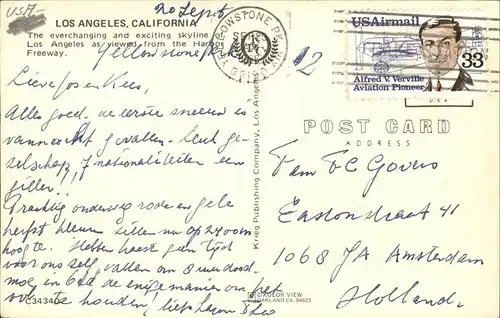 USA
20 Sept
LOS ANGELES, CALIFORNIA
The everchanging and exciting skyline
Los Angeles as viewed from the Harbor
Freeway.
Yellowstone Pk
Lieve Jos en Kees,
Alles goed. de eerste sneeuw is
vannacht gevallen. Leuk ge-
zelschap 7 nationaliteiten een
giller!!!
Prachtig onderweg rode en gele
herfst kleuren zitten nu op 2400 m
hoogte. Hebben haast geen tijd
voor ons zelf, vallen om 8 uur dood
moe in bed de enige manier om het
vol te houden! liefs
C34340
Krieg Publishing Company, Los Angeles
COLOR VIEW
OAKLAND CA. 94623
YELLOWSTONE PK
12
USAirmail
33
Alfred V. Verville
Aviation Pioneer
POST CARD
ADDRESS
Fam FC Govers
Eastonstraat 41
1068 JA Amsterdam
Holland.